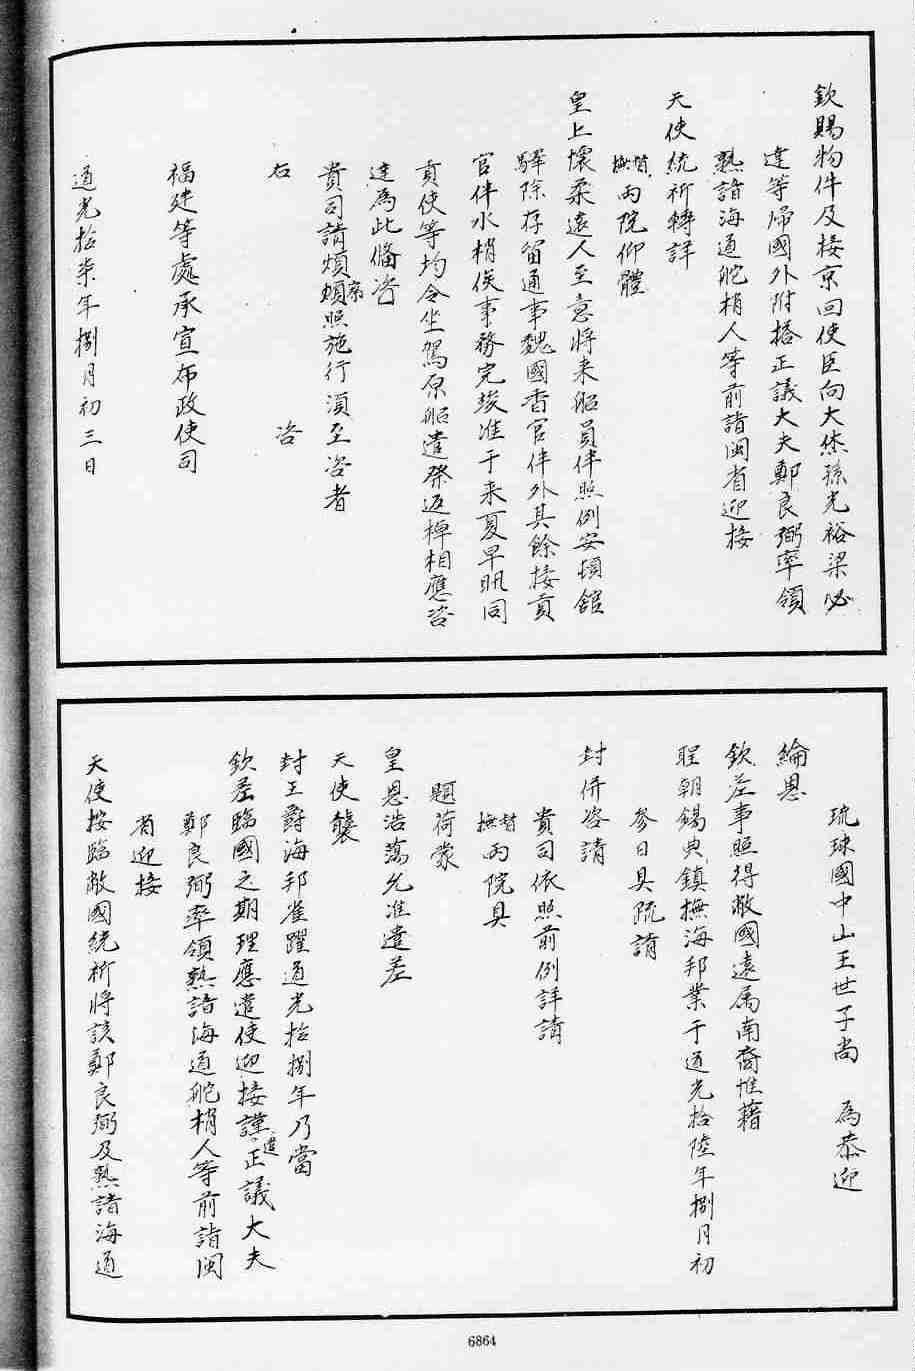 欽賜物件及接京回使臣向大烋孫光裕梁必
達等歸國外附搭正議大夫鄭良弼率領
熟諳海道舵梢人等前詣閩省迎接
天使統祈轉詳
督撫兩院仰體
皇上懷柔遠人至意將来船員伴照例安頓館
驛除存留通事魏國香官伴外其餘接貢
官伴水梢俟事務完竣准于来夏早汛同
貢使等均令坐駕原船遣發返棹相應咨
達為此備咨
貴司請煩察照施行須至咨者
右咨
福建等處承宣布政使司
道光拾柒年捌月初三日
琉球國中山王世子尚 為恭迎
綸恩
欽差事照得敝國遠属南裔惟藉
聖朝錫典鎮撫海邦業于道光拾陸年捌月初
參日具疏請
封併咨請
貴司依照前例詳請
督撫兩院具
題荷蒙
皇恩浩蕩允准遣差
天使襲
封王爵海邦雀躍道光拾捌年乃當
欽差臨國之期理應遣使迎接謹遣正議大夫
鄭良弼率領熟諳海道舵梢人等前詣閩
省迎接
天使按臨敝國統祈將該鄭良弼及熟諳海道
6864